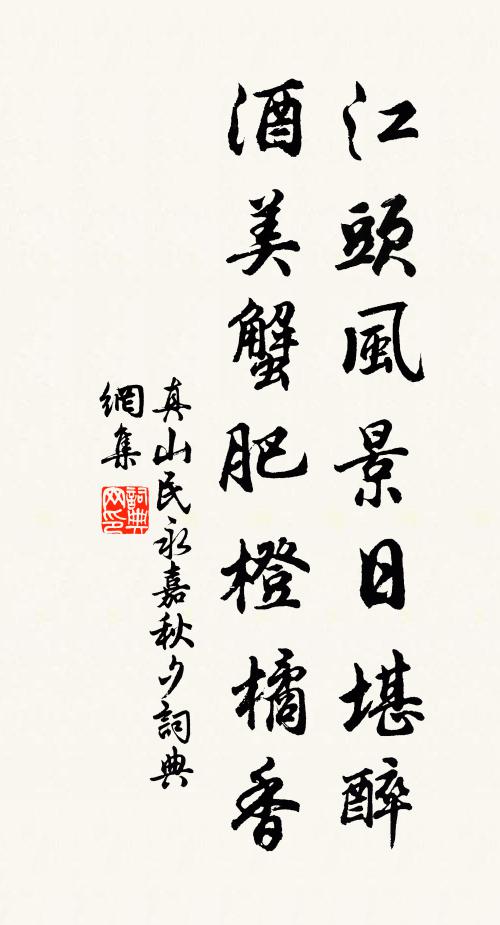 江頭風景日堪醉
酒美蟹肥橙橘香
真山民永嘉秋夕詞典
網集
詞典
网印